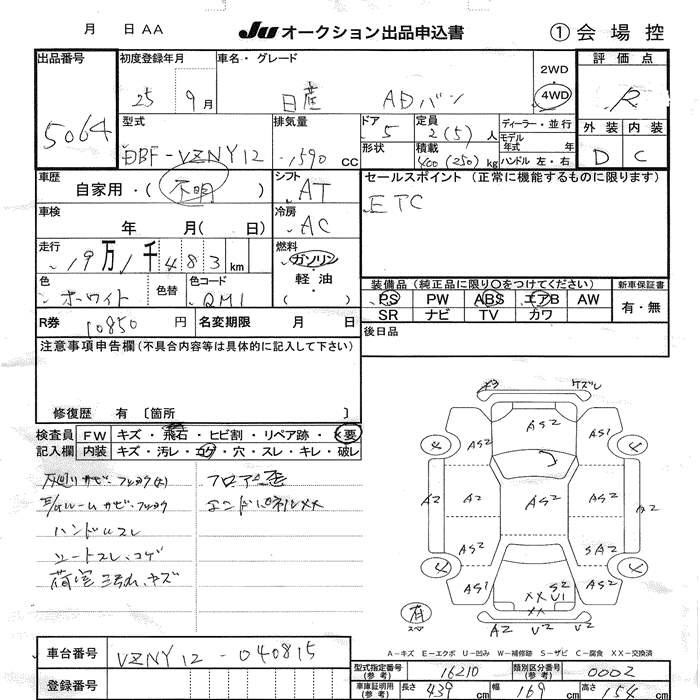 月 日 AA Ju オークション出品申込書 ① 会場控
出品番号 初度登録年月 車名・グレード 2WD 評価点
5064 25 9月 日産 ADバン 4WD R
型式 排気量 ドア 定員 ディーラー・並行 外装 内装
DBF-VZNY12 1590 CC 5 2(5)人 モデル年式 年
形状 積載 400(250)kg ハンドル 左・右 D C
車歴 自家用・(不明) シフト AT セールスポイント (正常に機能するものに限ります)
車検 年 月(日) 冷房 AC ETC
走行 19万1千483km 燃料 ガソリン
軽油
( )
色 ホワイト 色替 色コード QM1 装備品 (純正品に限り○をつけてください) 新車保証書
PS PW ABS エアB AW 有・無
SR ナビ TV カワ
R券 10850円 名変期限 月 日 後日品
注意事項申告欄(不具合内容等は具体的に記入して下さい)
修復歴 有 〔箇所 〕
検査員 FW キズ・飛石・ヒビ割・リペア跡・X要
記入欄 内装 キズ・汚レ・コゲ・穴・スレ・キレ・破レ
フロア歪
ルーム サビ
エンドパネルXX
ハンドルスレ
シートスレ・コゲ
荷室 キズ
ケズレ
AS2
AS2 AS1
4 4
A2 A2 AS2 AS2 A2
AS2 SA2
4 4
AS1 S2 AS2
XX U1
XX
有
スペア
A2 U2 U2
A-キズ E-エクボ U-凹み W-補修跡 S-サビ C-腐食 XX-交換済
車台番号 VZNY12-040815
型式指定番号(参考) 16210 類別区分番号(参考) 0002
登録番号 車庫証明用(参考) 長さ 439cm 幅 169cm 高さ 154cm